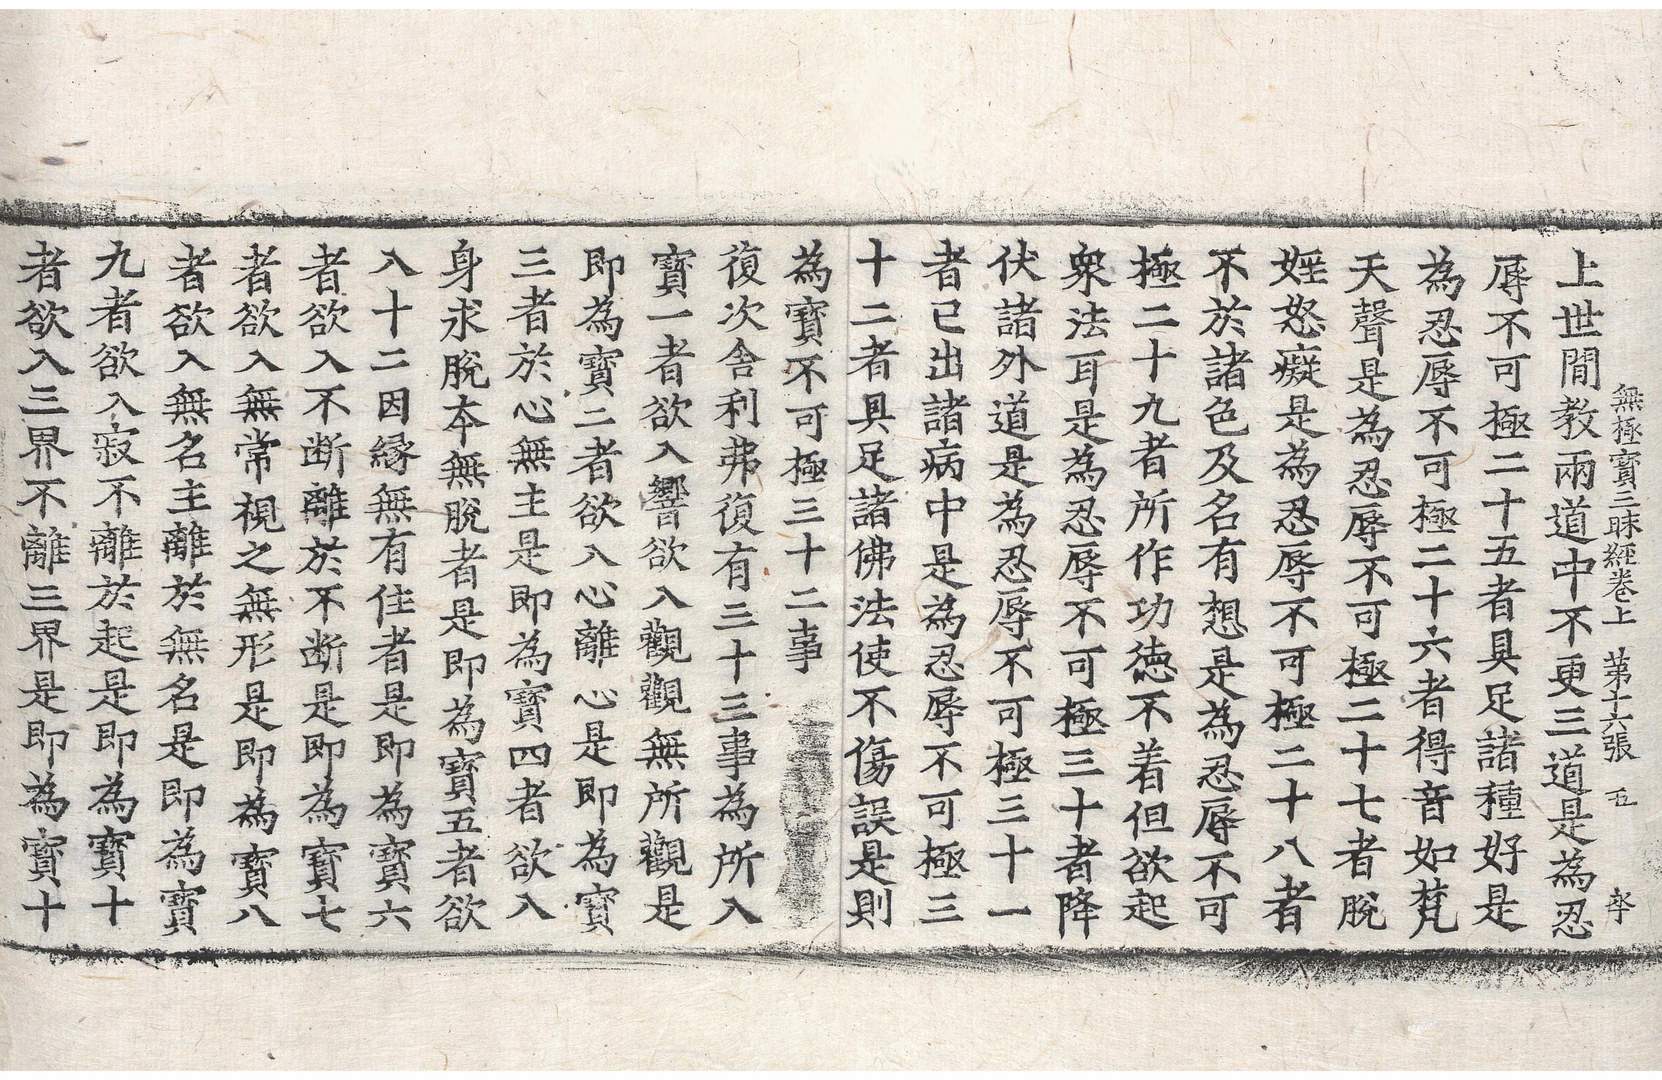 無極寶三昧經卷上 第十六張 五
上世間教兩道中不更三道是為忍
辱不可極二十五者具足諸種好是
為忍辱不可極二十六者得音如梵
天聲是為忍辱不可極二十七者脫
婬怒癡是為忍辱不可極二十八者
不於諸色及名有想是為忍辱不可
極二十九者所作功德不着但欲起
衆法耳是為忍辱不可極三十者降
伏諸外道是為忍辱不可極三十一
者已出諸病中是為忍辱不可極三
十二者具足諸佛法使不傷誤是則
為寶不可極三十二事
復次舍利弗復有三十三事為所入
寶一者欲入響欲入觀觀無所觀是
即為寶二者欲入心離心是即為寶
三者於心無主是即為寶四者欲入
身求脫本無脫者是即為寶五者欲
入十二因緣無有住者是即為寶六
者欲入不断離於不断是即為寶七
者欲入無常視之無形是即為寶八
者欲入無名主離於無名是即為寶
九者欲入寂不離於起是即為寶十
者欲入三界不離三界是即為寶十